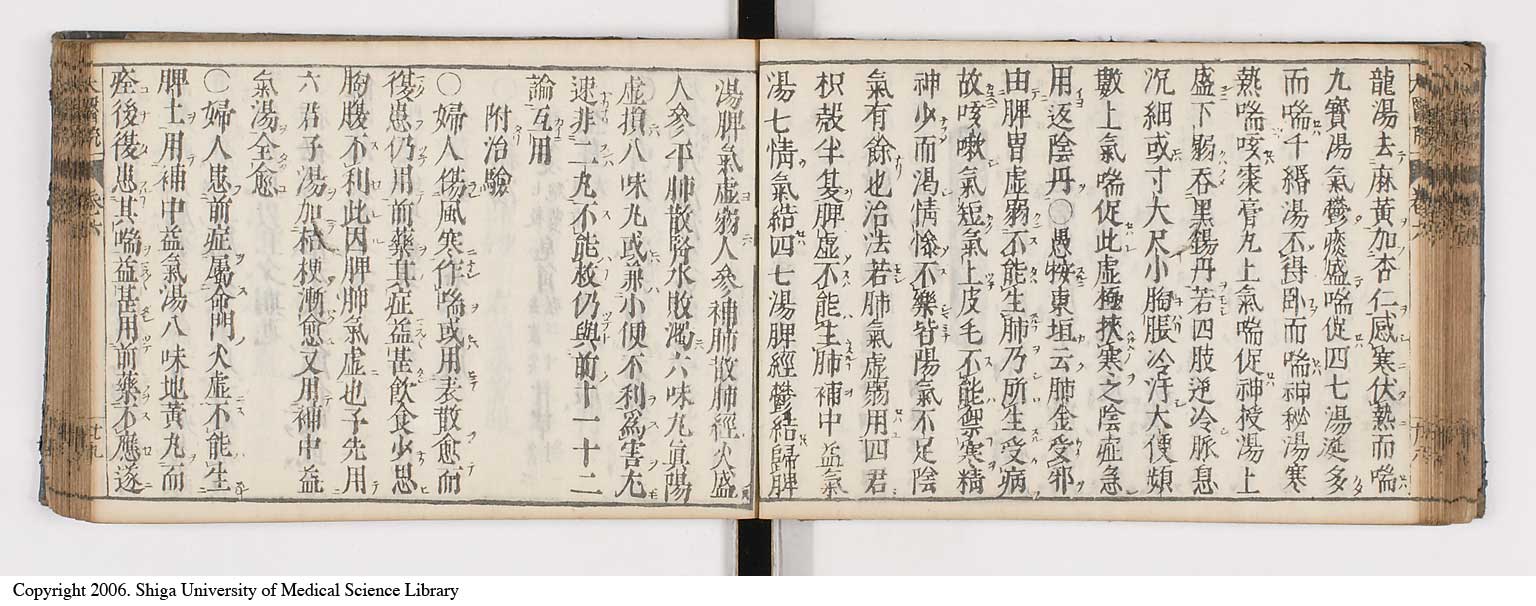 龍湯去麻黄加杏仁感寒伏熱而喘
九寳湯氣鬱痰盛喘促四七湯涎多
而喘千緡湯不得卧而喘神秘湯寒
熱喘咳棗膏丸上氣喘促神授湯上
盛下弱呑黒錫丹若四肢逆冷脈息
沉細或寸大尺小胸脹冷汗大便頻
數上氣喘促此虚極挾寒之陰症急
用返陰丹〇愚按東垣云肺金受邪
由脾胃虚弱不能生肺乃所生受病
故咳嗽氣短氣上皮毛不能禦寒精
神少而渇情惨不樂皆陽氣不足陰
氣有餘也治法若肺氣虚弱用四君
枳殻半夏脾虚不能生肺補中益氣
湯七情氣結四七湯脾經鬱結歸脾
湯脾氣虚弱人參補肺散肺經火盛
人參平肺散腎水敗濁六味丸眞陽
虚損八味丸或兼小便不利爲害尤
速非二丸不能救仍與前十一十二
論互用
附治驗
〇婦人傷風寒作喘或用表散愈而
復患仍用前藥其症益甚飲食少思
胸腹不利此因脾肺氣虚也子先用
六君子湯加桔梗漸愈又用補中益
氣湯全愈
〇婦人患前症屬命門火虚不能生
脾土用補中益氣湯八味地黄丸而
痊後復患其喘益甚用前藥不應遂
卷六
廿九
Copyright 2006. Shiga University of Medical Science Library